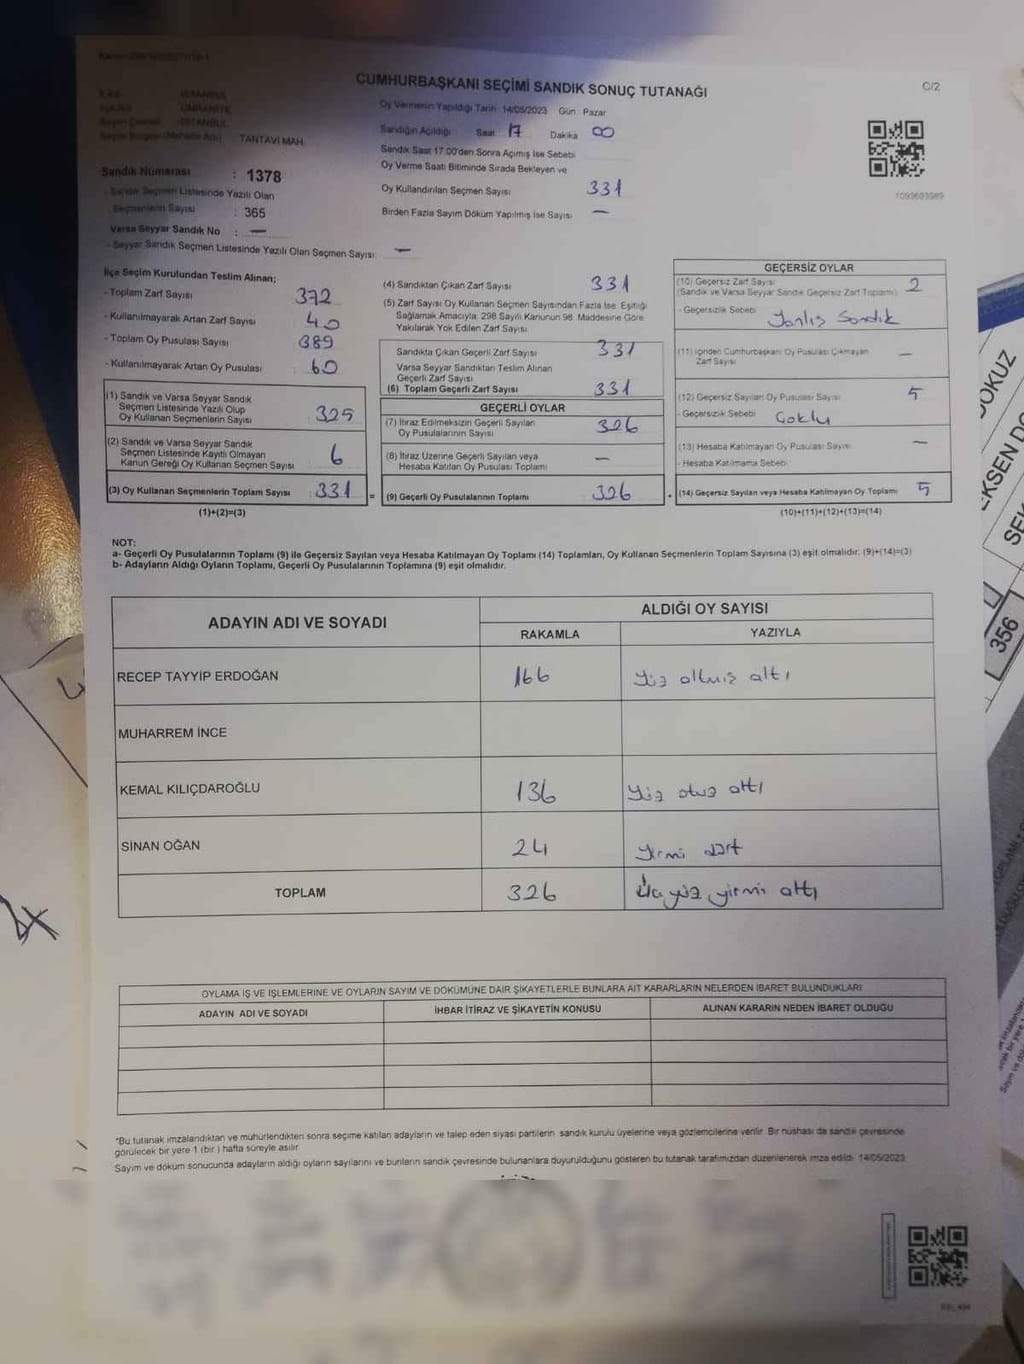 CUMHURBAŞKANI SEÇİMİ SANDIK SONUÇ TUTANAĞI
C/2
İSTANBUL
ÜMRANİYE
İSTANBUL
TANTAVİ MAH.
Oy Vermenin Yapıldığı Tarih 14/05/2023 Gün Pazar
Sandığın Açıldığı Saat 17 Dakika 00
Sandık Saat 17.00'den Sonra Açımış İse Sebebi
Oy Verme Saati Bitiminde Sırada Bekleyen ve
Oy Kullandırılan Seçmen Sayısı 331
Birden Fazla Sayım Döküm Yapılmış İse Sayısı —
1093603989
Sandık Numarası : 1378
- Sandık Seçmen Listesinde Yazılı Olan
Seçmenlerin Sayısı : 365
Varsa Seyyar Sandık No : —
- Seyyar Sandık Seçmen Listesinde Yazılı Olan Seçmen Sayısı —
İlçe Seçim Kurulundan Teslim Alınan;
- Toplam Zarf Sayısı 372
- Kullanılmayarak Artan Zarf Sayısı : 40
- Toplam Oy Pusulası Sayısı : 389
- Kullanılmayarak Artan Oy Pusulası : 60
(1) Sandık ve Varsa Seyyar Sandık
Seçmen Listesinde Yazılı Olup
Oy Kullanan Seçmenlerin Sayısı 325
(2) Sandık ve Varsa Seyyar Sandık
Seçmen Listesinde Kayıtlı Olmayan
Kanun Gereği Oy Kullanan Seçmen Sayısı 6
(3) Oy Kullanan Seçmenlerin Toplam Sayısı 331 =
(1)+(2)=(3)
(4) Sandıktan Çıkan Zarf Sayısı 331
(5) Zarf Sayısı Oy Kullanan Seçmen Sayısından Fazla İse, Eşitliği
Sağlamak Amacıyla; 298 Sayılı Kanunun 98. Maddesine Göre
Yakılarak Yok Edilen Zarf Sayısı
Sandıkta Çıkan Geçerli Zarf Sayısı 331
Varsa Seyyar Sandıktan Teslim Alınan
Geçerli Zarf Sayısı
(6) Toplam Geçerli Zarf Sayısı 331
GEÇERLİ OYLAR
(7) İtiraz Edilmeksizin Geçerli Sayılan
Oy Pusulalarının Sayısı 326
(8) İtiraz Üzerine Geçerli Sayılan veya
Hesaba Katılan Oy Pusulası Toplamı —
(9) Geçerli Oy Pusulalarının Toplamı 326 +
GEÇERSİZ OYLAR
(10) Geçersiz Zarf Sayısı 2
(Sandık ve Varsa Seyyar Sandık Geçersiz Zarf Toplamı)
- Geçersizlik Sebebi Yanlış Sandık
(11) İçinden Cumhurbaşkanı Oy Pusulası Çıkmayan
Zarf Sayısı —
(12) Geçersiz Sayılan Oy Pusulası Sayısı 5
- Geçersizlik Sebebi Çoklu
(13) Hesaba Katılmayan Oy Pusulası Sayısı —
- Hesaba Katılmama Sebebi
(14) Geçersiz Sayılan veya Hesaba Katılmayan Oy Toplamı 5
(10)+(11)+(12)+(13)=(14)
NOT:
a- Geçerli Oy Pusulalarının Toplamı (9) ile Geçersiz Sayılan veya Hesaba Katılmayan Oy Toplamı (14) Toplamları, Oy Kullanan Seçmenlerin Toplam Sayısına (3) eşit olmalıdır. (9)+(14)=(3)
b- Adayların Aldığı Oyların Toplamı, Geçerli Oy Pusulalarının Toplamına (9) eşit olmalıdır.
ADAYIN ADI VE SOYADI
ALDIĞI OY SAYISI
RAKAMLA YAZIYLA
RECEP TAYYİP ERDOĞAN 166 Yüz altmış altı
MUHARREM İNCE
KEMAL KILIÇDAROĞLU 136 Yüz otuz altı
SİNAN OĞAN 24 Yirmi dört
TOPLAM 326 Üçyüz yirmi altı
OYLAMA İŞ VE İŞLEMLERİNE VE OYLARIN SAYIM VE DÖKÜMÜNE DAİR ŞİKAYETLERLE BUNLARA AİT KARARLARIN NELERDEN İBARET BULUNDUKLARI
ADAYIN ADI VE SOYADI İHBAR İTİRAZ VE ŞİKAYETİN KONUSU ALINAN KARARIN NEDEN İBARET OLDUĞU
*Bu tutanak imzalandıktan ve mühürlendikten sonra seçime katılan adayların ve talep eden siyasi partilerin sandık kurulu üyelerine veya gözlemcilerine verilir. Bir nüshası da sandık çevresinde
görülecek bir yere 1 (bir ) hafta süreyle asılır.
Sayım ve döküm sonucunda adayların aldığı oyların sayılarını ve bunların sandık çevresinde bulunanlara duyurulduğunu gösteren bu tutanak tarafımızdan düzenlenerek imza edildi. 14/05/2023
DOKUZ
356